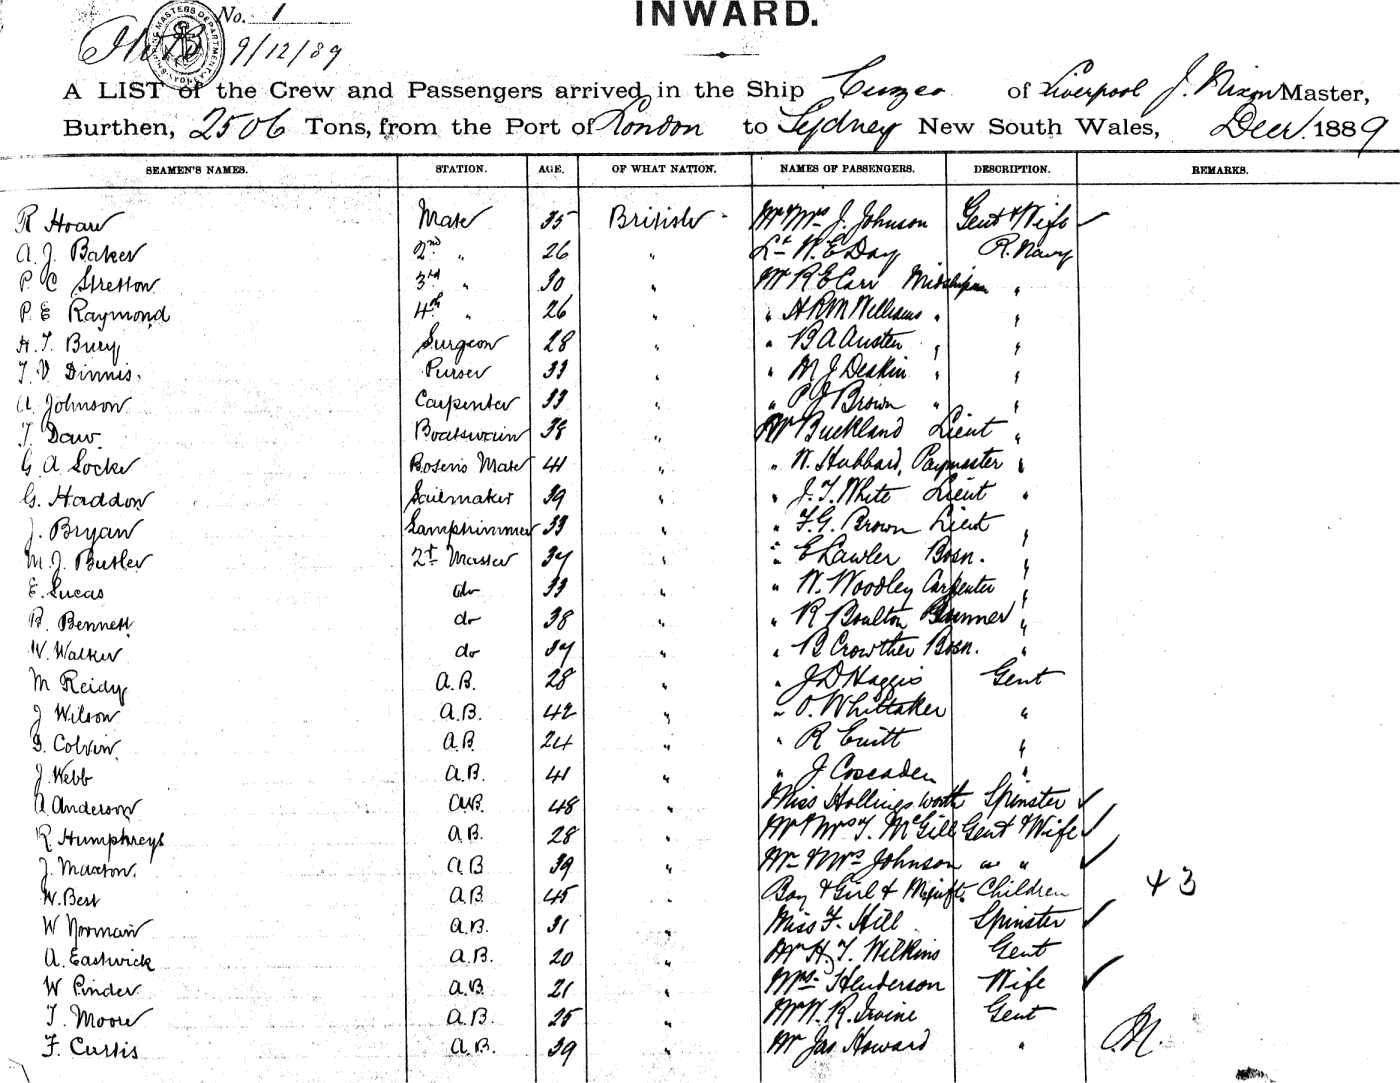 No. 1
INWARD.
9/12/89
A LIST of the Crew and Passengers arrived in the Ship Cuzco of Liverpool J. Nixon Master,
Burthen, 2506 Tons, from the Port of London to Sydney New South Wales, Decr. 1889
SEAMEN'S NAMES. STATION. AGE. OF WHAT NATION. NAMES OF PASSENGERS. DESCRIPTION. REMARKS.
R Hoar Mate 35 British Mr & Mrs J. Johnson Gent & Wife ✓
A. J. Baker 2nd " 26 " Lt W. E Day R. Navy
P C Stretton 3rd " 30 " Mr R E Carr Midshipman "
P. E Raymond 4th " 26 " " A R M Williams " "
H. T. Bury Surgeon 28 " " B A Austen " "
T. V Dinnis. Purser 33 " " M J Deakin " "
A Johnson Carpenter 33 " " P J Brown " "
T. Daw. Boatswain 38 " Mr Buckland Lieut "
G A Locke Bosens Mate 41 " " W. Hubbard, Paymaster "
G. Haddon Sailmaker 39 " " J. T. White Lieut "
J. Bryan Lamptrimmer 33 " " F. G. Brown Lieut "
M. J. Butler 2r Master 34 " " E Lawler Bosn. "
E. Lucas do 33 " " W. Woodley Carpenter "
B. Bennett do 38 " " R Boulton Gunner "
W. Walker do 34 " " B Crowther Bosn. "
M Reidy A.B. 28 " " J D Haggis Gent
J Wilson A.B. 42 " " O. Whittaker "
Colvin A.B. 24 " " R Cuitt "
J. Webb A.B. 41 " " J Coscaden "
A Anderson A.B. 48 " Miss Hollingsworth Spinster ✓
R Humphreys A.B. 28 " Mr & Mrs T. McGill Gent & Wife ✓
J. Maxton. A.B 39 " Mr & Mrs Johnson " " ✓
W. Best A.B. 45 " Boy & Girl & Children 43
W Norman A.B. 31 " Miss F. Hill Spinster ✓
A. Eastwick A.B. 20 " Mr H. T. Wilkins Gent
W Pinder A.B. 21 " Mrs Henderson Wife ✓
T. Moore A.B. 25 " Mr W. R. Irvine Gent
F. Curtis A.B. 39 " Mr Jas Howard "